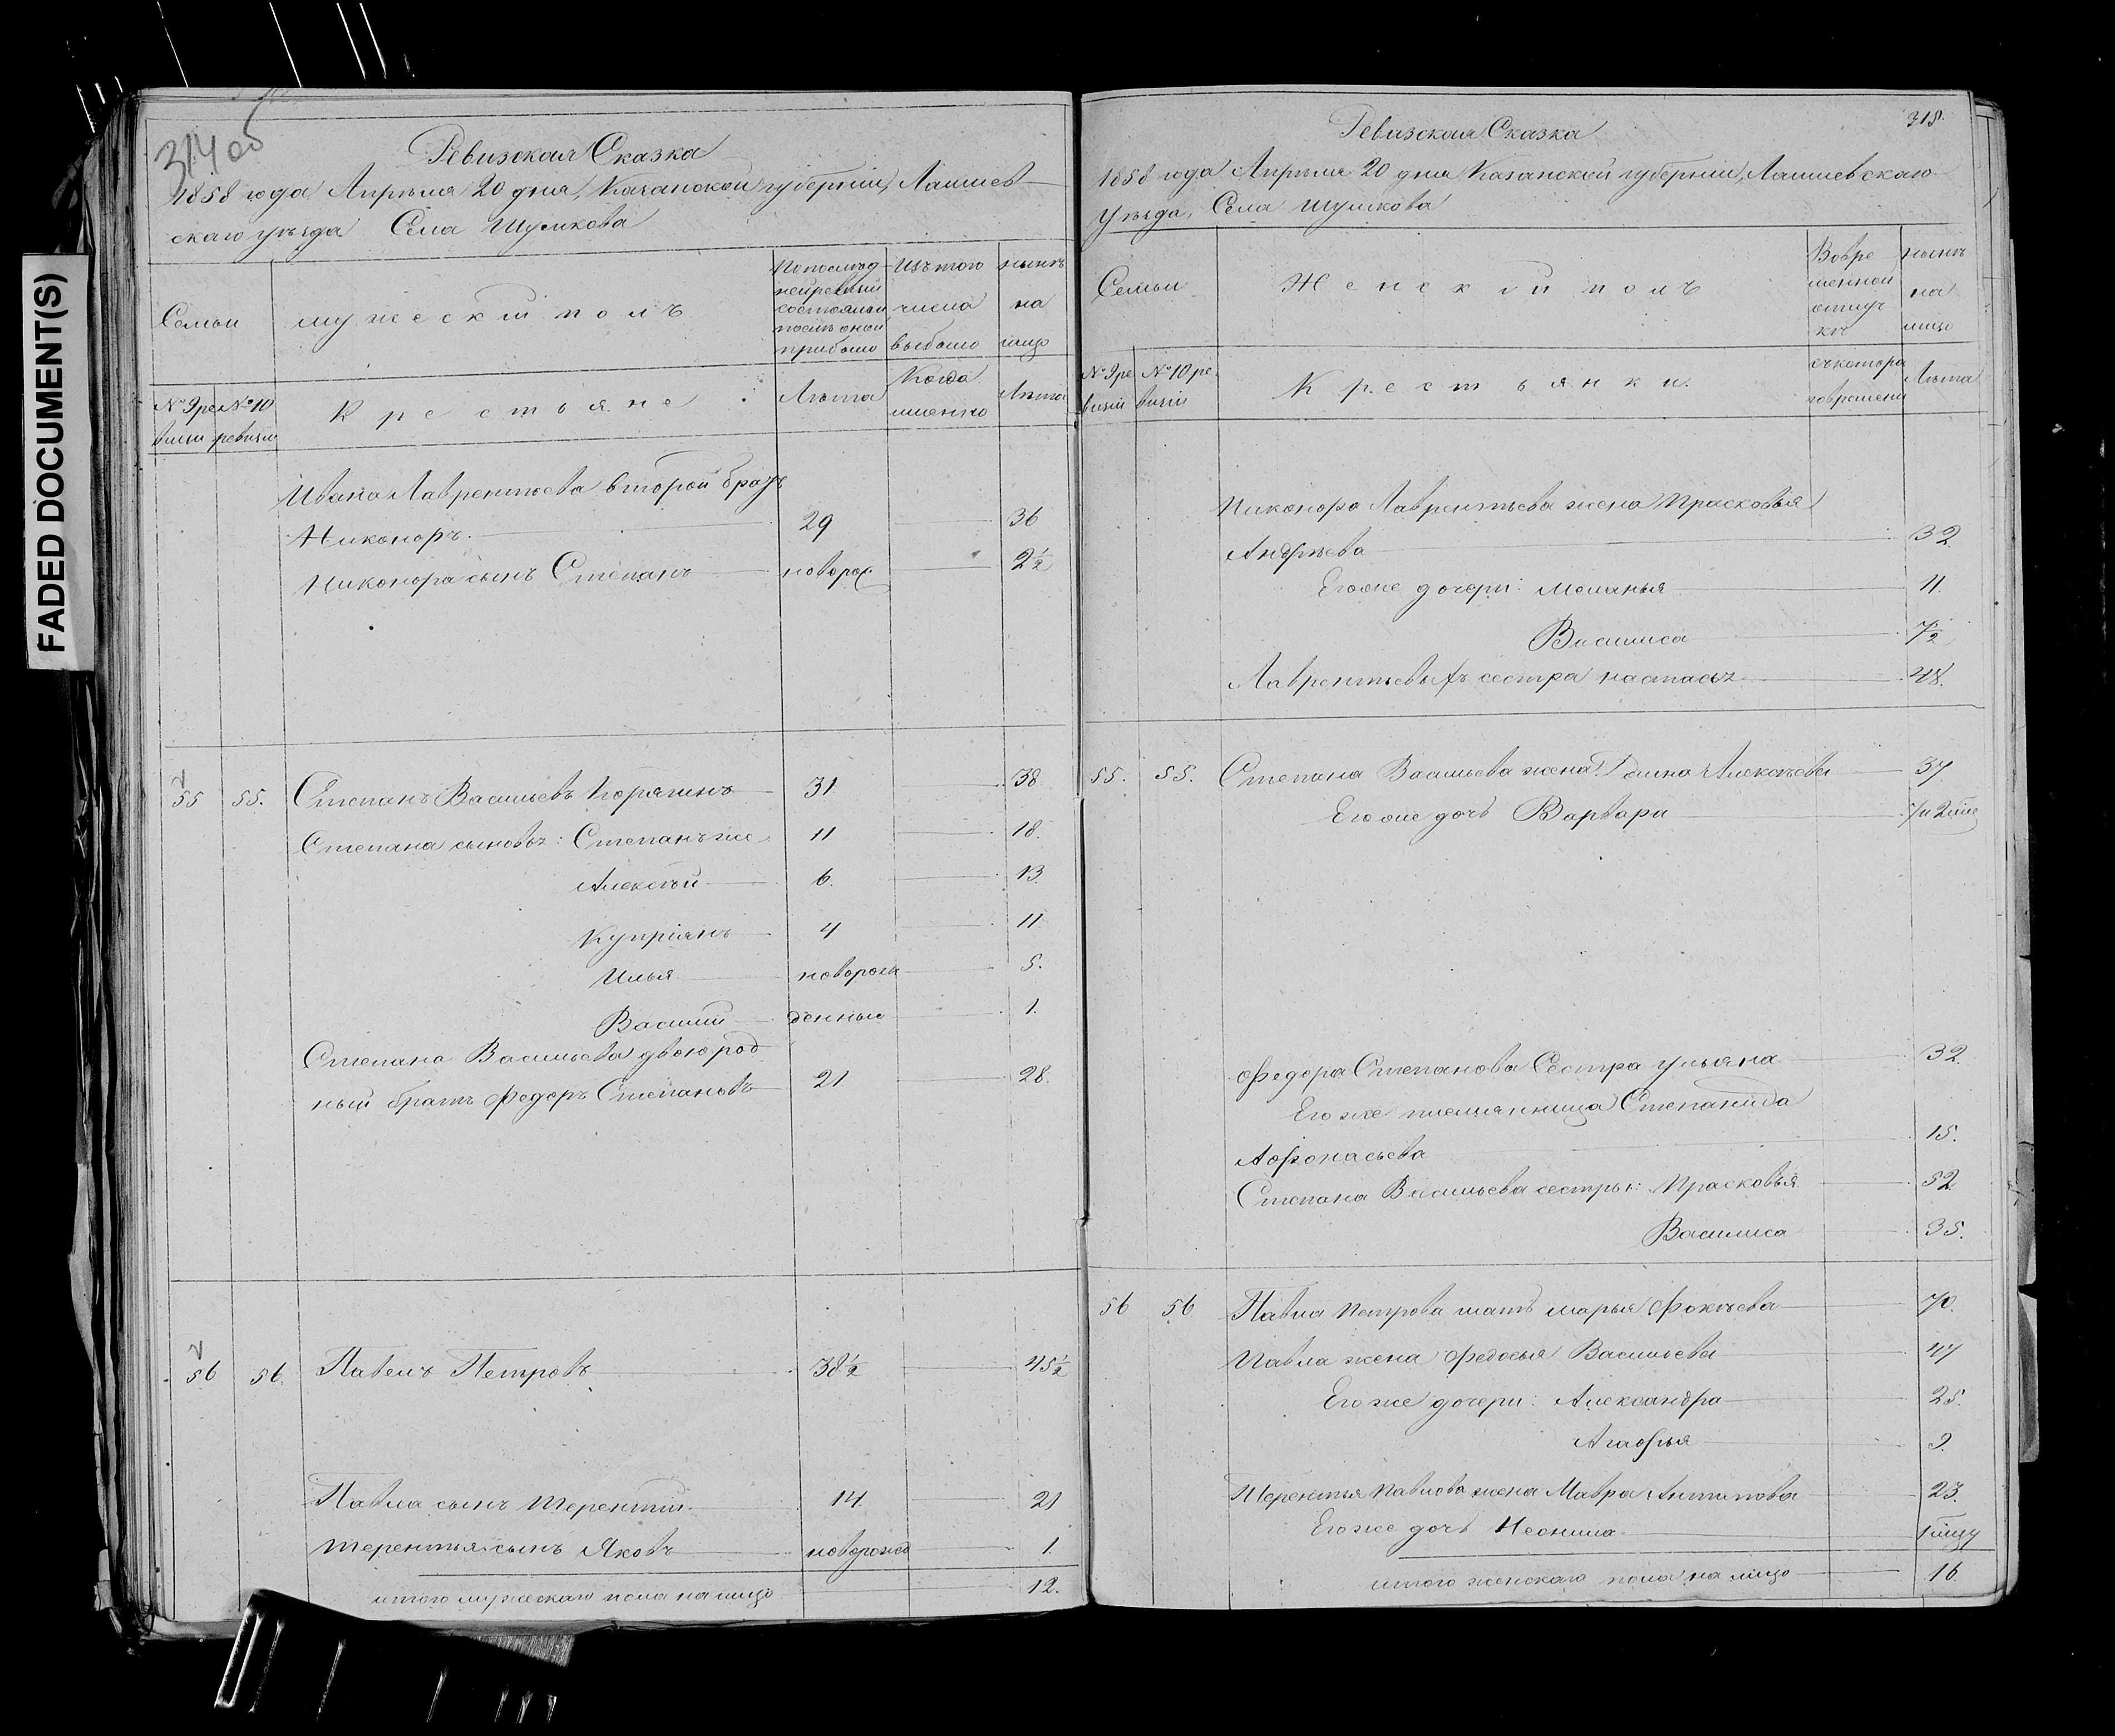 FADED DOCUMENT(S)
314 об
Ревизская Сказка
1858 года Апрѣля 20 дня, Казанской губерніи, Лаишев
скаго уѣзда Села Шумкова
Семьи
мужеский полъ
По послѣд
ней ревизіи
состояло и
послѣ оной
прибыло
Изъ того
числа
выбыло
нынѣ
на
лицо
№ 9 ре
визіи
№ 10
ревизіи
Крестьяне
Лѣта
Когда
именно
Лѣта
Ивана Лаврентьева второй братъ
Никоноръ. 29 36
Никонора сынъ Степанъ новорож 2½
55 55. Степанъ Васильевъ 31 38
Степана сыновья: Степанъ же 11 18.
Алексѣй 6. 13.
Купріянъ 4 11
Илья новорож 5.
Василий денные 1.
Степана Васильева двоюрод
ный братъ Федоръ Степановъ 21 28.
56 56. Павелъ Петровъ 38½ 45½
Павла сынъ Терентий 14. 21
Терентья сынъ Яковъ новорожд 1.
итого мужескаго пола на лицо 12.
Ревизская Сказка
318.
1858 года Апрѣля 20 дня Казанской губерніи, Лаишевскаго
Уѣзда, Села Шумкова
Семьи
Женский полъ
Во вре
менной
отлуч
кѣ
нынѣ
на
лицо
№ 9 ре
визіи
№ 10 ре
визіи
Крестьянки.
съ котора
го времени
Лѣта
Никонора Лаврентьева жена Прасковья
Андрѣева 32
Его же дочери: Меланья 11.
Василиса 7½
Лаврентьевыхъ сестра Настасья 48.
55. 55. Степана Васильева жена Алексѣева 37
Его же дочь Варвара
Федора Степанова Сестра Ульяна 32.
Его же племянница Степанида
Афонасьева 15.
Степана Васильева сестры: Прасковья 52
Василиса 35.
56 56 Павла Петрова мать Марья Фокѣева 70.
Павла жена Федосья Васильева 47
Его же дочери: Александра 25.
Агафья 9.
Терентья Павлова жена Мавра Антипова 23.
Его же дочь Неонила
итого женскаго пола на лицо 16